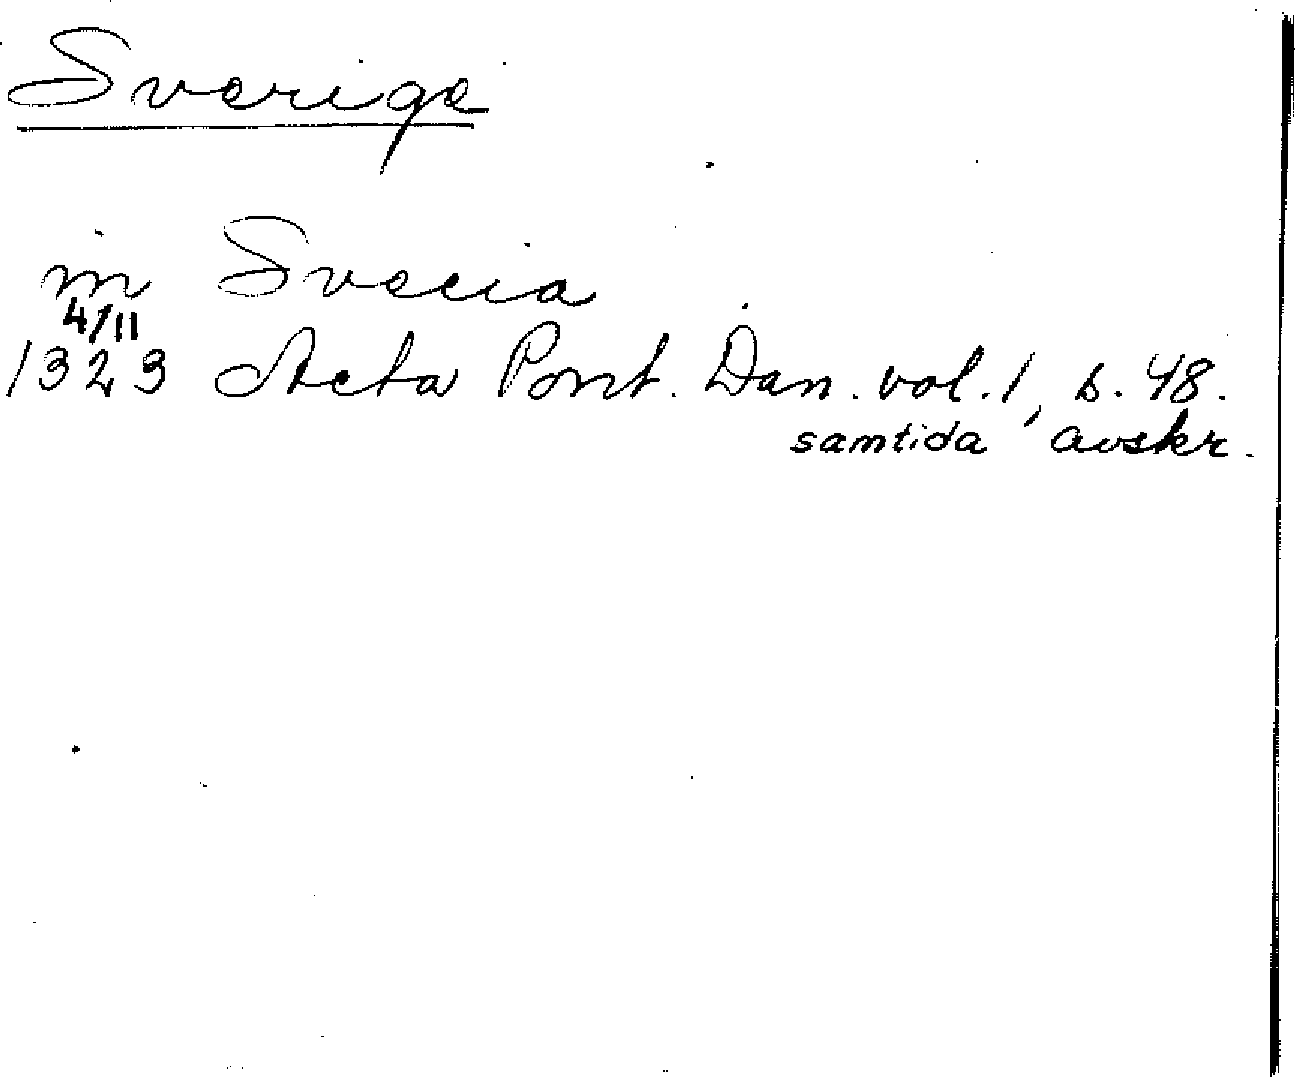 Sverige
in Svecia
4/11
1323 Acta Pont. Dan. vol. 1, s. 48.
samtida avskr.